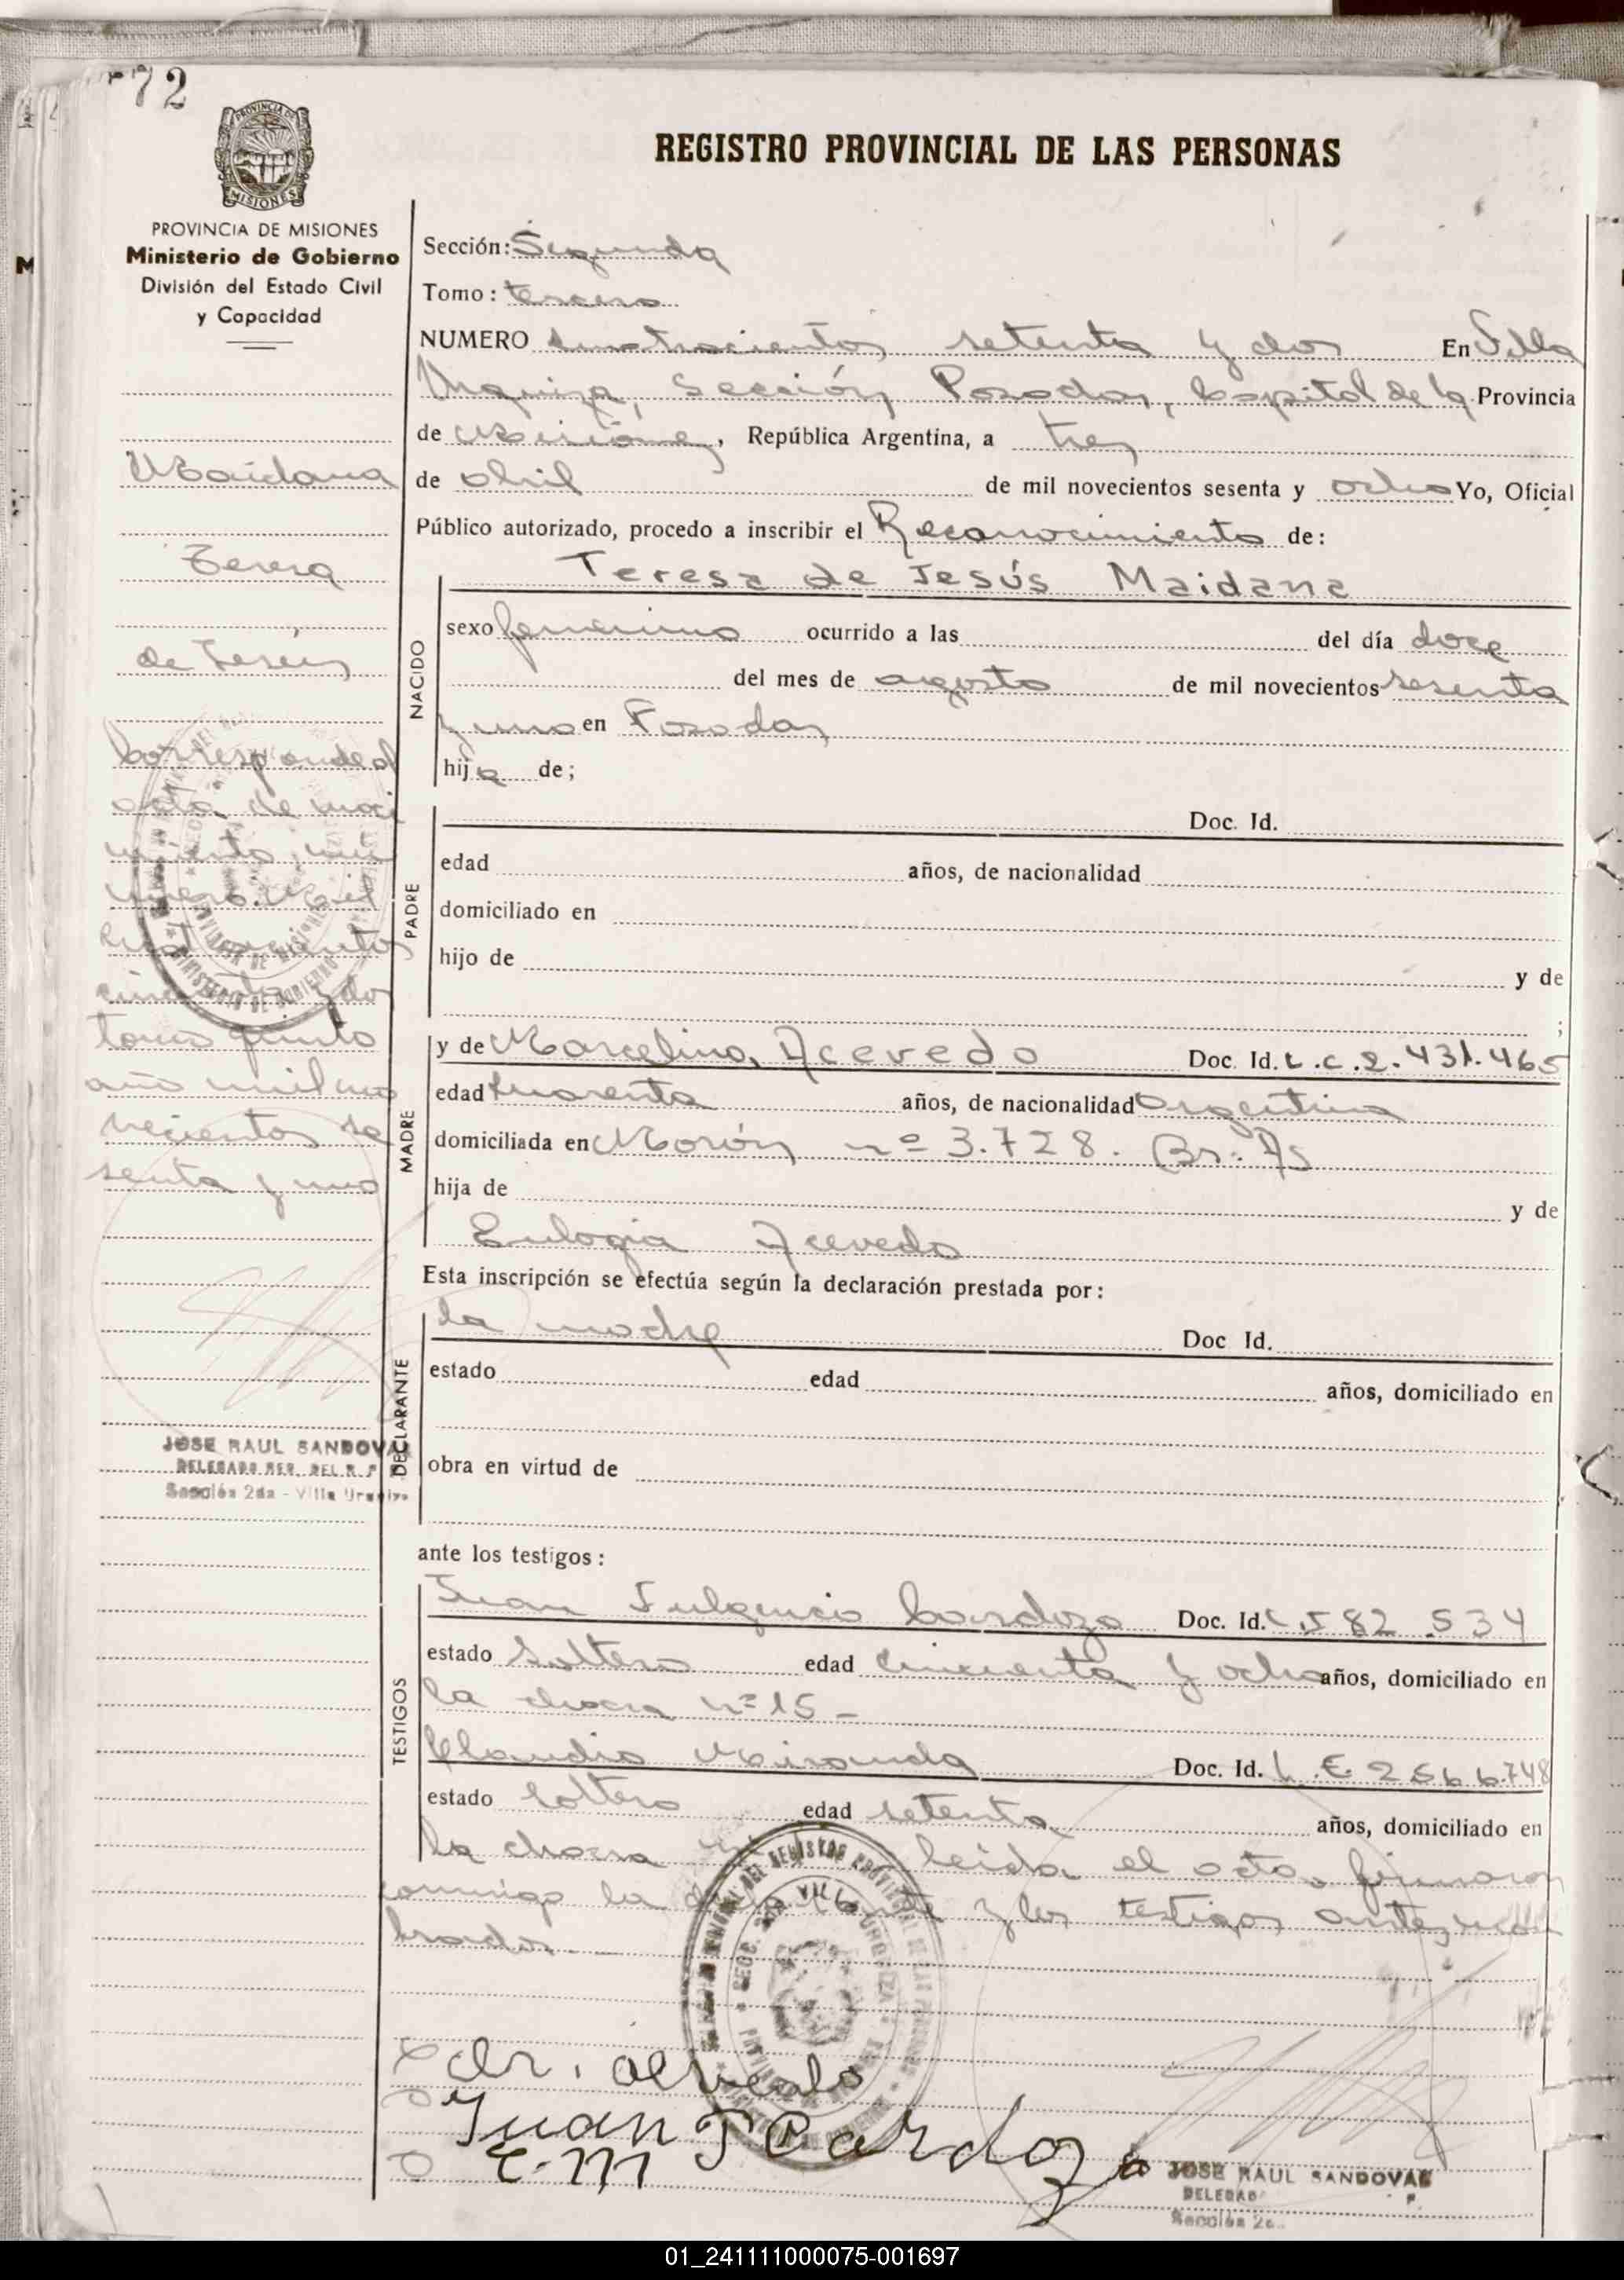 72
REGISTRO PROVINCIAL DE LAS PERSONAS
PROVINCIA DE MISIONES
Ministerio de Gobierno
División del Estado Civil
y Capacidad
Maidana
Teresa
de Jesús
Corresponde al
acta de naci
miento nú
mero Mil
cuatrocientos
cincuenta y dos
tomo quinto
año mil no
vecientos se
senta y uno
JOSE RAUL SANDOVAL
DELEGADO
Sección 2da - Villa Urquiza
Sección: Segunda
Tomo: tercero
NUMERO Cuatrocientos setenta y dos En Villa
Urquiza, Sección Posadas, Capital de la Provincia
de Misiones, República Argentina, a tres
de abril de mil novecientos sesenta y ocho Yo, Oficial
Público autorizado, procedo a inscribir el Reconocimiento de:
Teresa de Jesús Maidana
NACIDO
sexo femenino ocurrido a las del día doce
del mes de agosto de mil novecientos sesenta
y uno en Posadas
hija de;
PADRE
Doc. Id.
edad años, de nacionalidad
domiciliado en
hijo de y de
;
MADRE
y de Marcelina Acevedo Doc. Id. L.C. 2.431.465
edad Cuarenta años, de nacionalidad argentina
domiciliada en Morón nº 3.728. Bs. As
hija de y de
Eulogia Acevedo
Esta inscripción se efectúa según la declaración prestada por:
DECLARANTE
la madre Doc Id.
estado edad años, domiciliado en
obra en virtud de
ante los testigos:
TESTIGOS
Juan Fulgencio Cardozo Doc. Id. 582.534
estado Soltero edad cincuenta y ocho años, domiciliado en
la chacra nº 15 -
Claudio Miranda Doc. Id. L.E. 2566.748
estado soltero edad setenta años, domiciliado en
la chacra leida el acta, firmaron
conmigo la declarante y los testigos antes nom
brados.
acevedo
Juan F Cardozo
C.M
JOSE RAUL SANDOVAL
DELEGADO
Sección 2a.
01_241111000075-001697